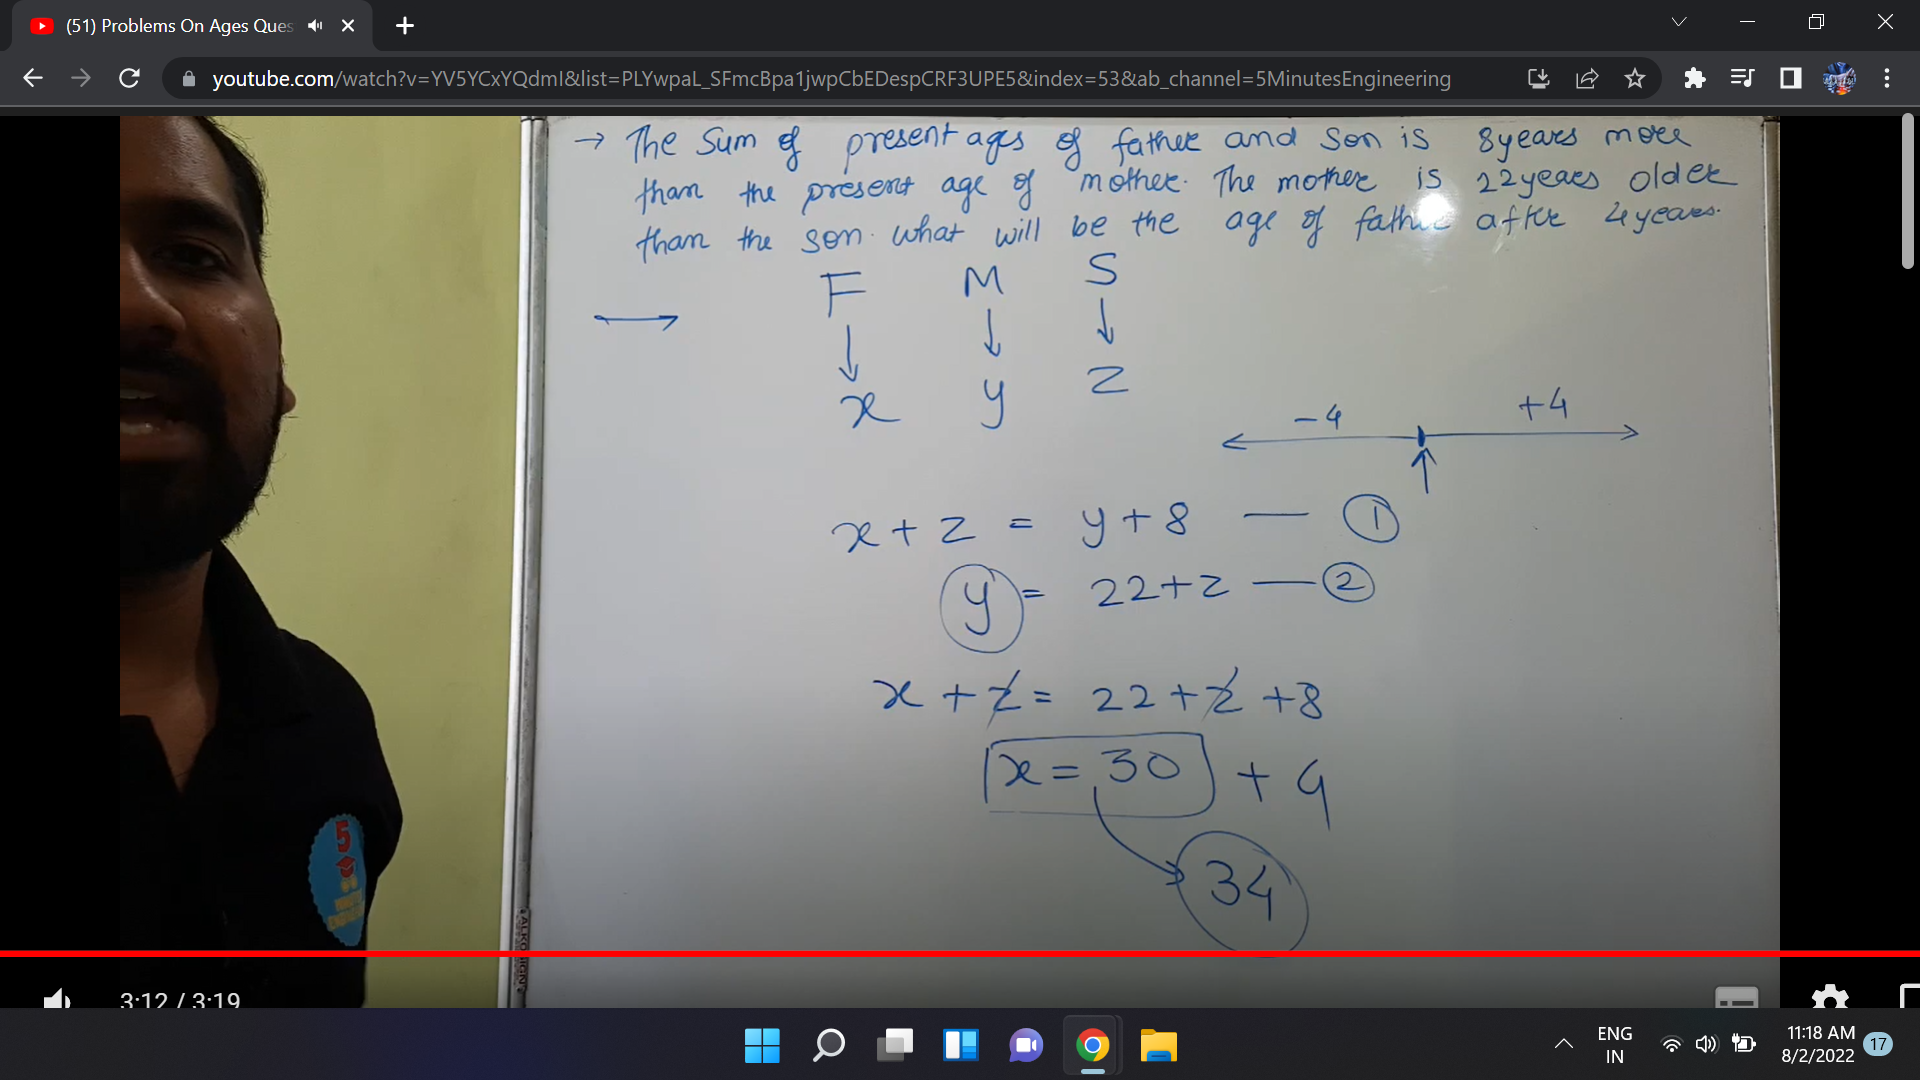 (51) Problems On Ages Ques
youtube.com/watch?v=YV5YCxYQdmI&list=PLYwpaL_SFmcBpa1jwpCbEDespCRF3UPE5&index=53&ab_channel=5MinutesEngineering
→ The Sum of present ages of father and Son is 8years more
than the present age of mother. The mother is 22years older
than the son. what will be the age of father after 4years.
F M S
x y z
-4 +4
x + z = y + 8 — 1
y = 22 + z — 2
x + z = 22 + z + 8
x = 30 + 4
34
5
3:12 / 3:19
ENG
IN
11:18 AM
8/2/2022
17